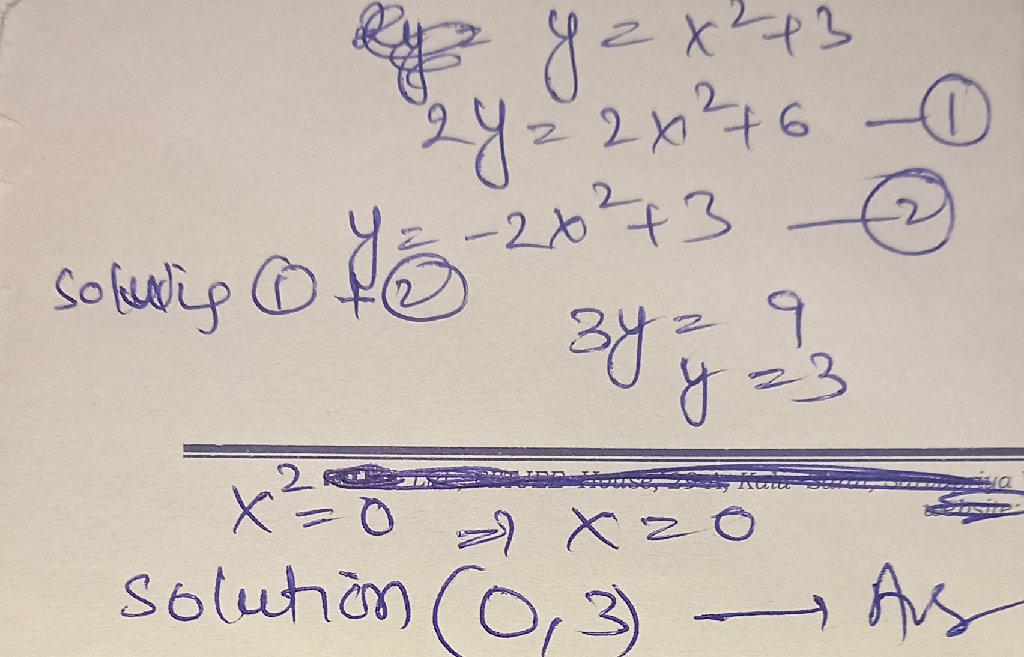 y = x²+3
2y = 2x²+6 —①
y = -2x²+3 —②
solving ① + ②
3y = 9
y = 3
x² = 0 ⇒ x = 0
solution (0,3) → Ans